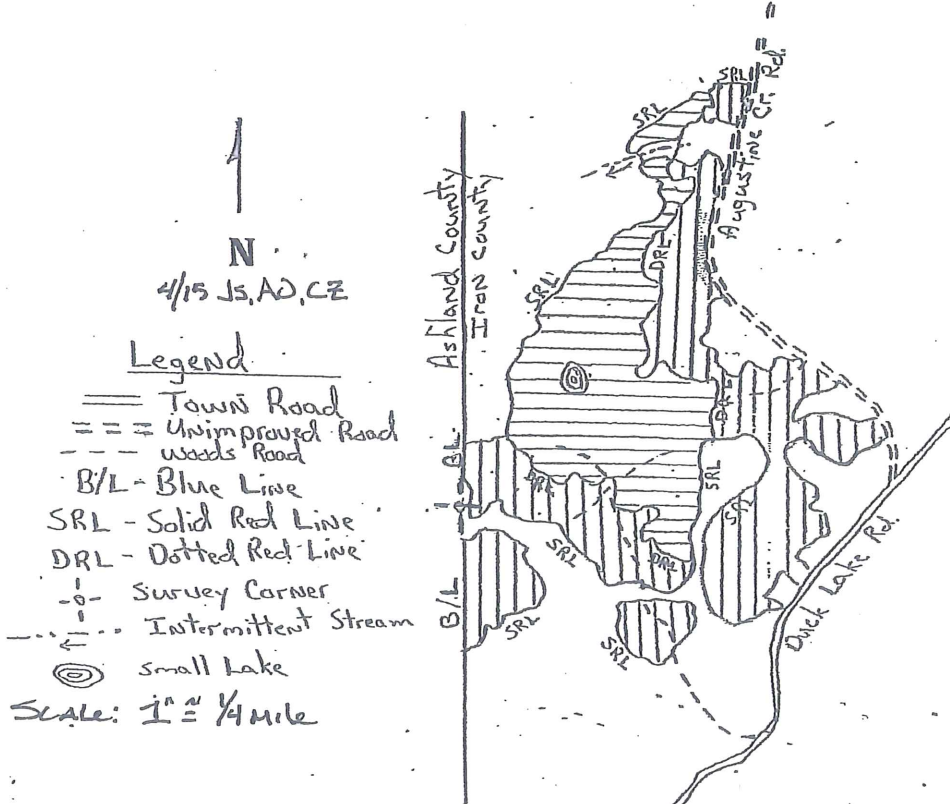 N
4/15 JS, AO, CZ
Legend
Town Road
Unimproved Road
Woods Road
B/L - Blue Line
SRL - Solid Red Line
DRL - Dotted Red Line
Survey Corner
Intermittent Stream
Small Lake
SCALE: 1" ≅ 1/4 Mile
Ashland County
Iron County
BL
B/L
SRL
SRL
Augustine Cr. Rd.
DRL
SRL
DRL
SRL
SRL
DRL
SRL
DRL
SRL
SRL
Duck Lake Rd.